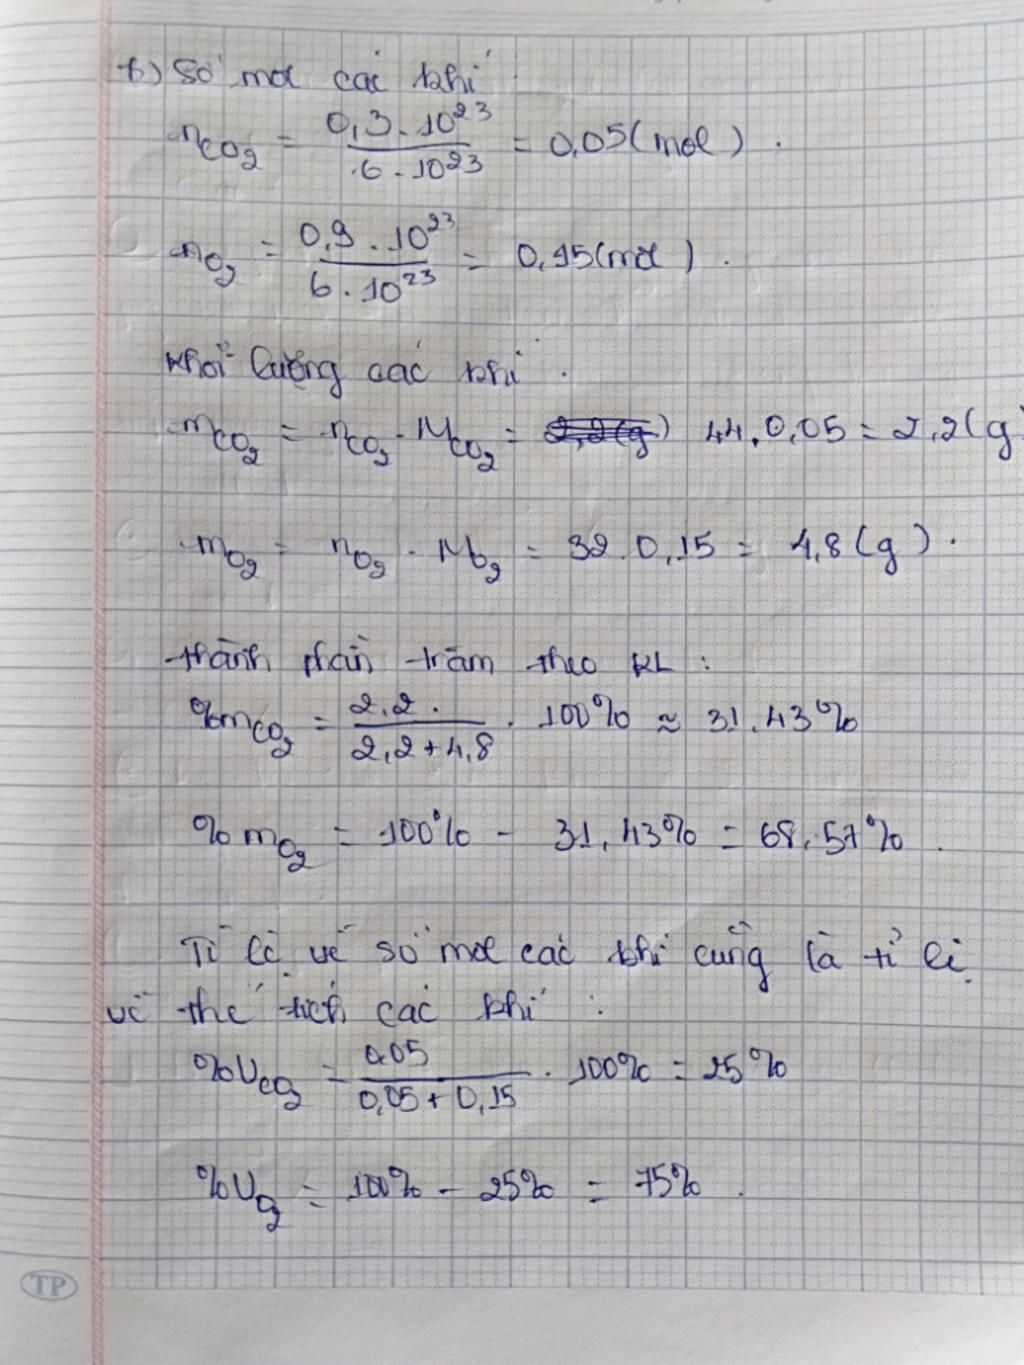 b) Số mol các khí
nCO2 = 0,3 . 10^23 / 6 . 10^23 = 0,05 (mol) .
nO2 = 0,9 . 10^23 / 6 . 10^23 = 0,15 (mol) .
Khối lượng các khí .
mCO2 = nCO2 . MCO2 = 44 . 0,05 = 2,2 (g)
mO2 = nO2 . MO2 = 32 . 0,15 = 4,8 (g) .
thành phần trăm theo KL :
%mCO2 = 2,2 / 2,2 + 4,8 . 100% ≈ 31,43%
%mO2 = 100% - 31,43% = 68,57% .
Tỉ lệ về số mol các khí cũng là tỉ lệ
về thể tích các khí :
%VCO2 = 0,05 / 0,05 + 0,15 . 100% = 25%
%VO2 = 100% - 25% = 75% .
TP